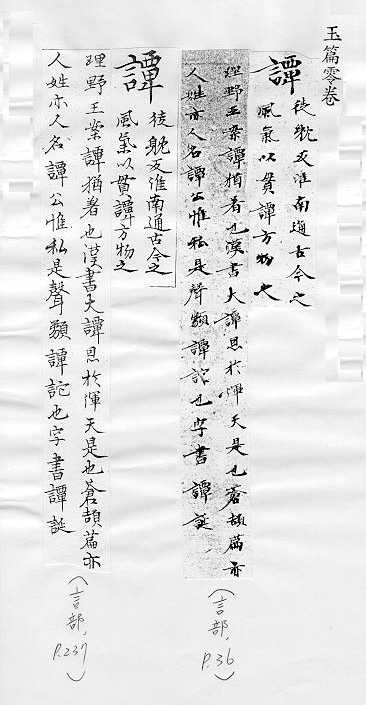 玉篇零卷
譚 徒躭反淮南通古今之
風氣以貫譚方物之
理野王案譚猶著也漢書大譚思於渾天是也蒼頡篇亦
人姓亦人名譚公惟私是聲類譚詑也字書譚誕
(言部, P.36)
譚 徒躭反淮南通古今之
風氣以貫譚方物之
理野王案譚猶著也漢書大譚思於渾天是也蒼頡篇亦
人姓亦人名譚公惟私是聲類譚詑也字書譚誕
(言部, P.237)